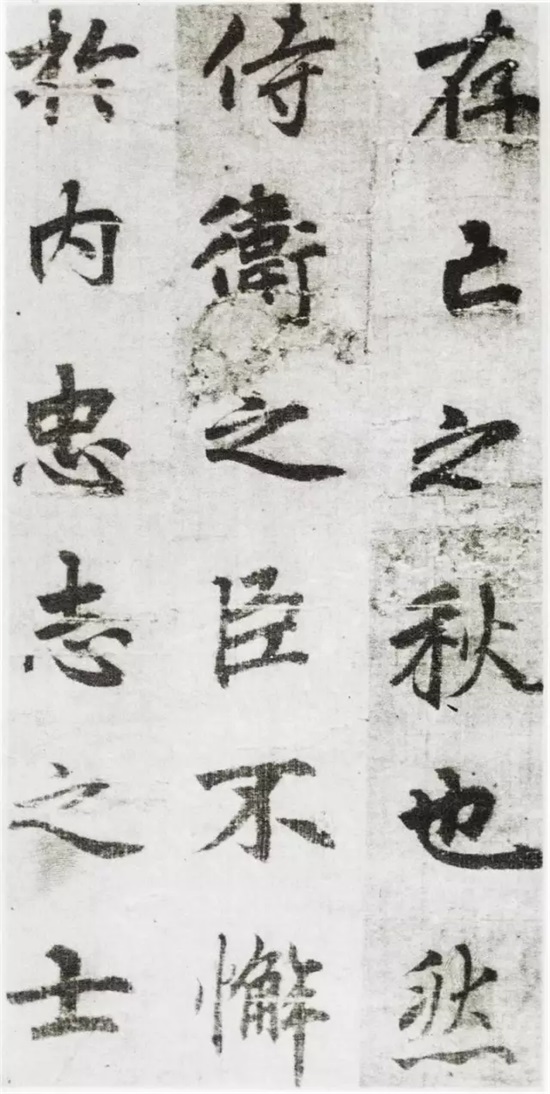 存亡之秋也然
侍衞之臣不懈
於内忠志之士